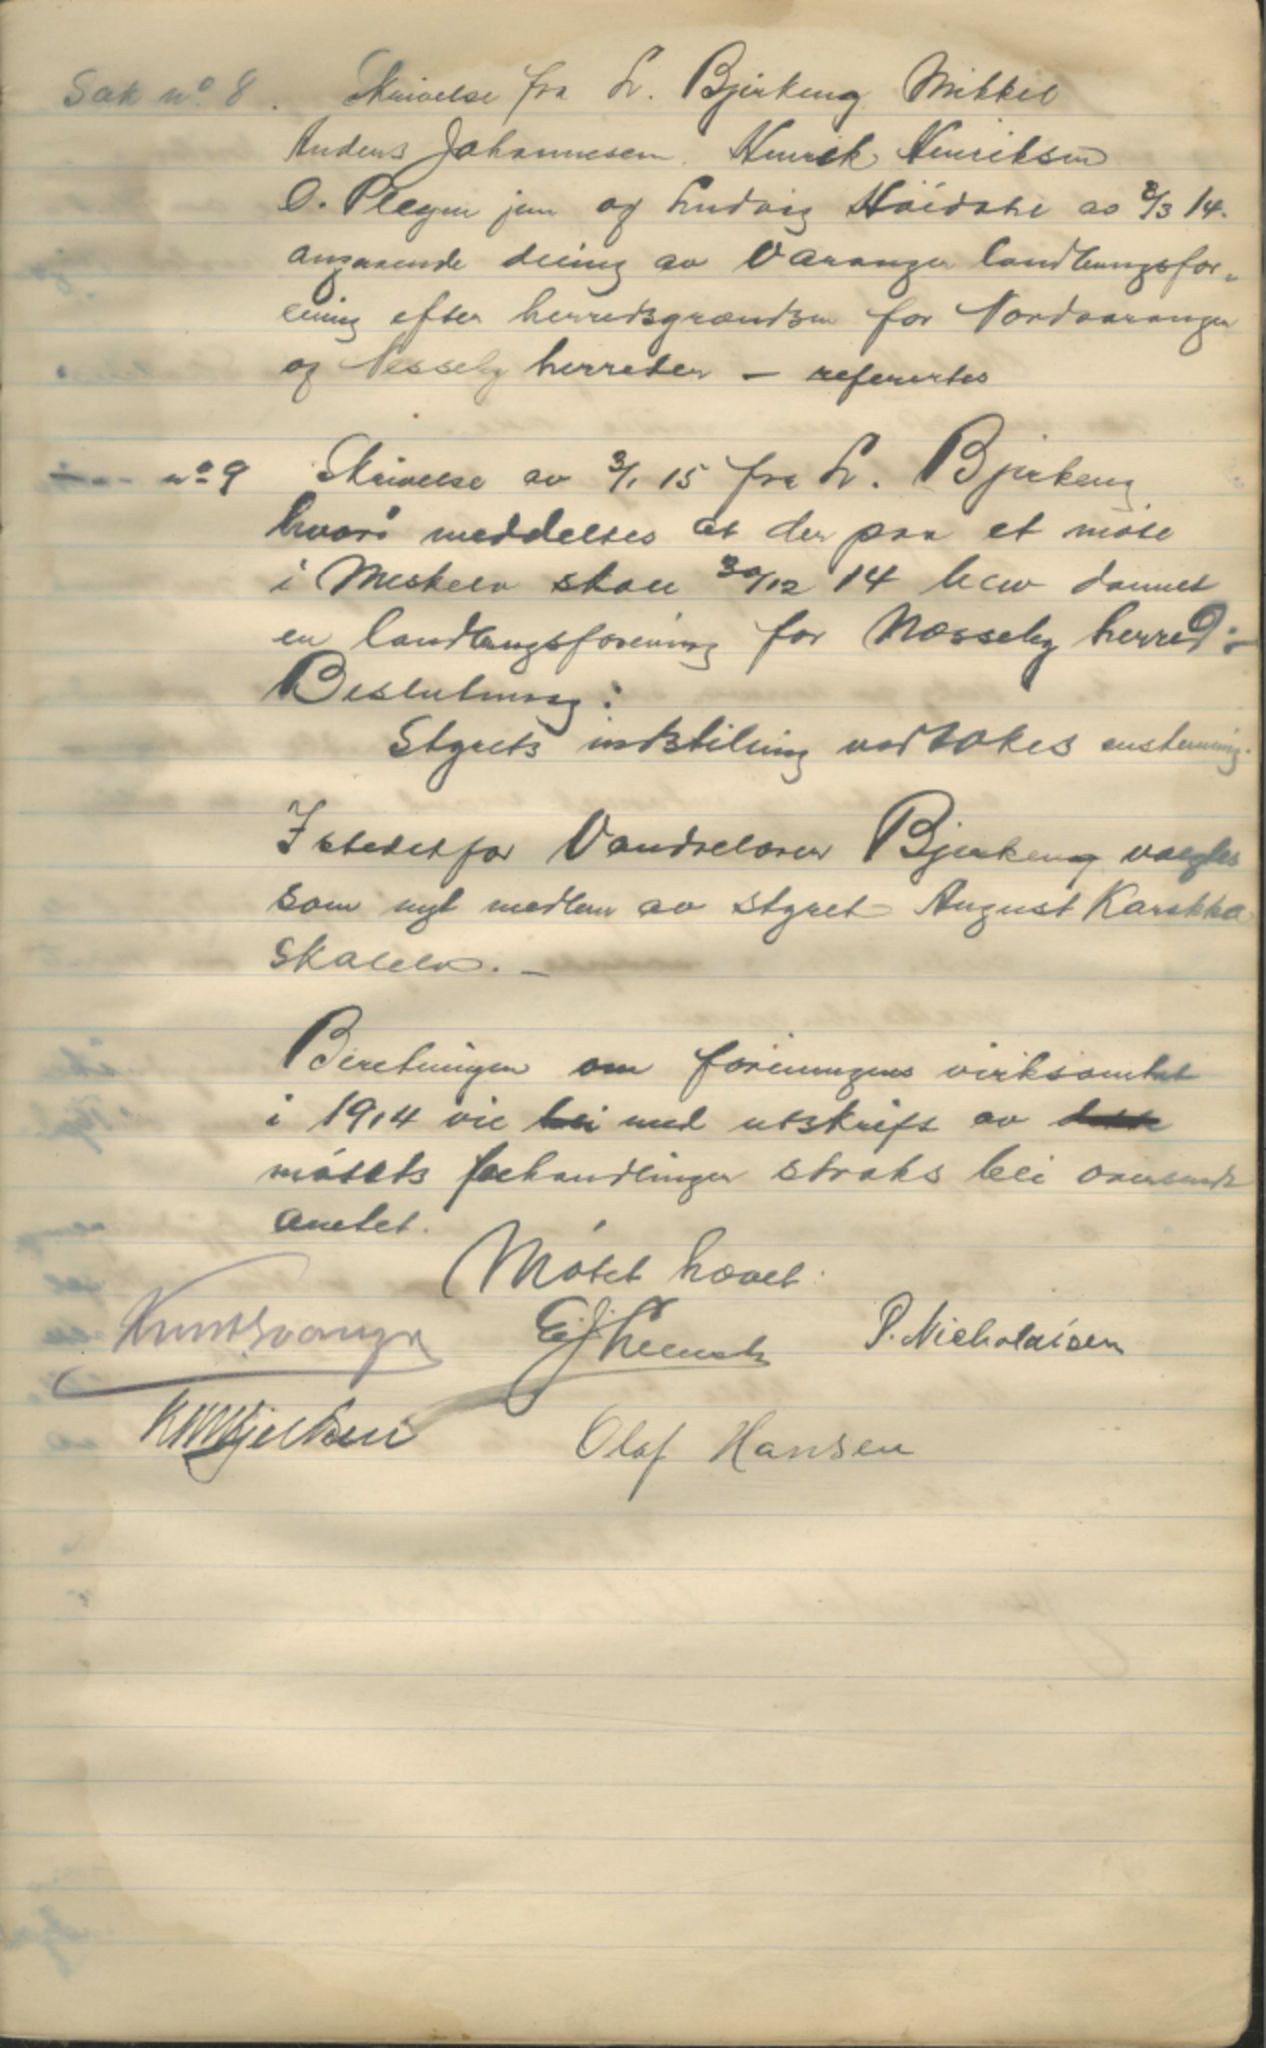 Sak nº 8. Skrivelse fra L. Bjerkeng Mikkel
Anders Johannesen Henrik Henriksen
O. Pleym jun og Ludvig Høidahl av 8/3 14.
angaaende deling av Varanger landbrugsfor-
ening efter herredsgrændsen for Nordvaranger
og Nesseby herreder — refertes
—"— nº 9 Skrivelse av 3/1 15 fra L. Bjerkeng
hvori meddeltes at der paa et møte
i Meskelv skall 30/12 14 blew dannet
en landbrugsforening for Næsseby herred:-
Beslutning:
Styrets indstilling vedtokes enstemmig.
Istedetfor Vandrelærer Bjerkeng valgtes
som nyt medlem av styret August Karikka
Skallelv. —
Beretningen om foreningens virksomhet
i 1914 vil bli med utskrift av dette
møtets behandlinger straks bli oversendt
amtet.
Møtet hævet.
P. Nicholaisen
Olaf Hansen